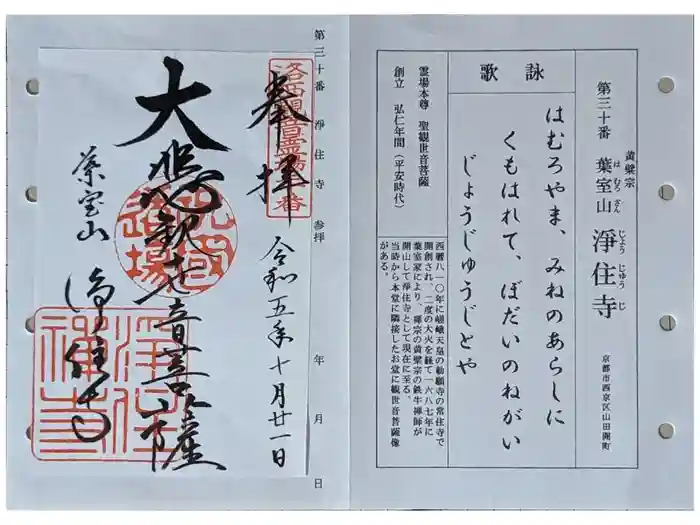 黄檗宗
第三十番 葉室山 淨住寺
はむろざん じょうじゅうじ
京都市西京区山田開町
詠歌
はむろやま、みねのあらしに
くもはれて、ぼだいのねがい
じょうじゅうじとや
霊場本尊 聖観世音菩薩
創立 弘仁年間(平安時代)
西暦八一〇年に嵯峨天皇の勅願寺の常住寺で
開創され、二度の大火を経て一六八七年に
葉室家により、禅宗の黄檗宗の鉄牛禅師が
開山して淨住寺として現在に至る。
当時から本堂に隣接したお堂に観世音菩薩像
がある。
第三十番 淨住寺 参拝 年 月 日
洛西観音霊場三十番
奉拝
令和五年十月廿一日
大悲観世音菩薩
葉室山
浄住寺